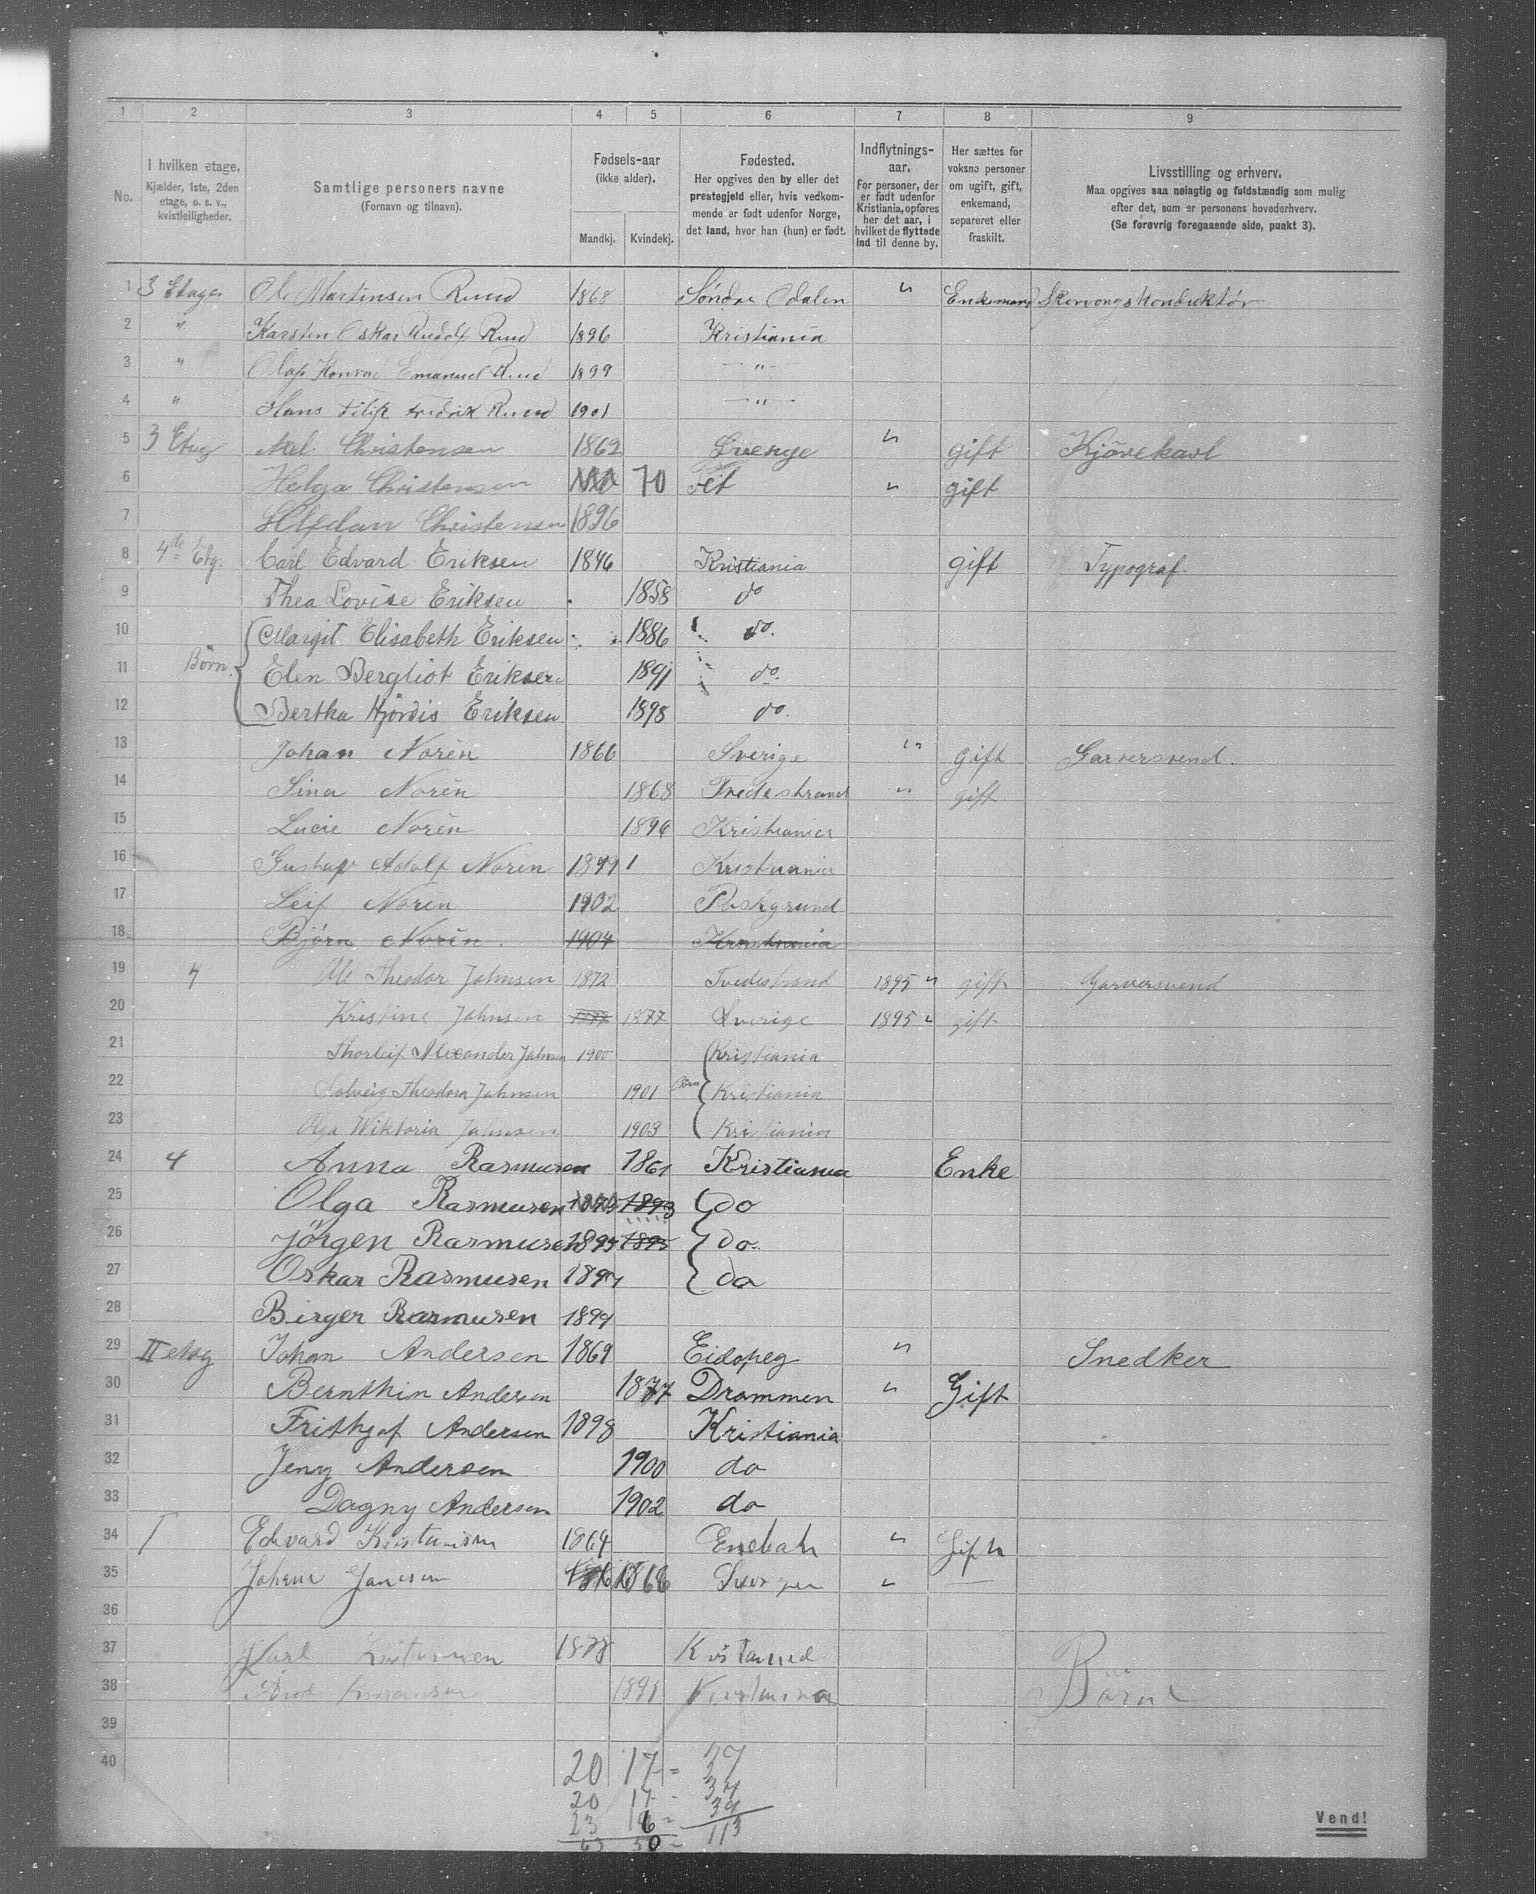 1 2 3 4 5 6 7 8 9
No.
I hvilken etage.
Kjælder, 1ste, 2den
etage, o. s. v.,
kvistleiligheder.
Samtlige personers navne
(Fornavn og tilnavn).
Fødsels-aar
(ikke alder).
Mandkj. Kvindekj.
Fødested.
Her opgives den by eller det
prestegjeld eller, hvis vedkom-
mende er født udenfor Norge,
det land, hvor han (hun) er født.
Indflytnings-
aar.
For personer, der
er født udenfor
Kristiania, opføres
her det aar, i
hvilket de flyttede
ind til denne by.
Her sættes for
voksne personer
om ugift, gift,
enkemand,
separeret eller
fraskilt.
Livsstilling og erhverv.
Maa opgives saa nøiagtig og fuldstændig som mulig
efter det, som er personens hovederhverv.
(Se forøvrig foregaaende side, punkt 3).
1 3 Etage Ole Martinsen Ruud 1868 Søndre Odalen " Enkemand Sporvongskonduktør
2 " Karsten Oskar Rudolf Ruud 1896 Kristiania
3 " Olaf Konrad Emanuel Ruud 1899 — " —
4 " Hans Filip Fredrik Ruud 1901 — " —
5 3 Etag Axel Christensen 1862 Sverige " gift Kjörekarl
6 Helga Christensen 70 " gift
7 Halfdan Christensen 1896
8 4de Etg. Carl Edvard Eriksen 1846 Kristiania gift Typograf
9 Thea Lovise Eriksen 1858 do
10 Margit Elisabeth Eriksen 1886 do.
11 Børn. Elen Bergliot Eriksen 1891 do.
12 Bertha Hjördis Eriksen 1898 do.
13 Johan Norén 1866 Sverige " gift Garversvend.
14 Sina Norén 1868 Tvedestrand " gift
15 Lucie Norén 1896 Kristiania
16 Gustav Adolf Norén 1899 1 Kristiania
17 Leif Norén 1902 Poskgrund
18 Bjørn Norén. 1904 Kristiania
19 4 Ole Theodor Johnsen 1872 Tvedestrand 1895 " gift Garversvend
20 Kristine Johnsen 1877 1877 Sverige 1895 " gift
21 Thorleif Alexander Johnsen 1900 Kristiania
22 Solveig Theodora Johnsen 1901 Börn Kristiania
23 Olga Wiktoria Johnsen 1903 Kristiania
24 4 Anna Rasmusen 1861 Kristiania Enke
25 Olga Rasmusen 1893 1893 do
26 Jörgen Rasmusen 1895 1895 do.
27 Oskar Rasmusen 1897 do
28 Birger Rasmusen 1899
29 II etag Johan Andersen 1869 Eidspeg " Snedker
30 Bernthin Andersen 1877 Drammen " Gift
31 Frithjof Andersen 1898 Kristiania
32 Jeny Andersen 1900 do
33 Dagny Andersen 1902 do
34 Edvard Kristiansen 1864 Enebak " Gift
35 Johana 1868 "
36
37 Karl
38 1891 Börn
39
40 20 17 =
20 17 - 37
23 16 = 39
63 50 = 113
Vend!